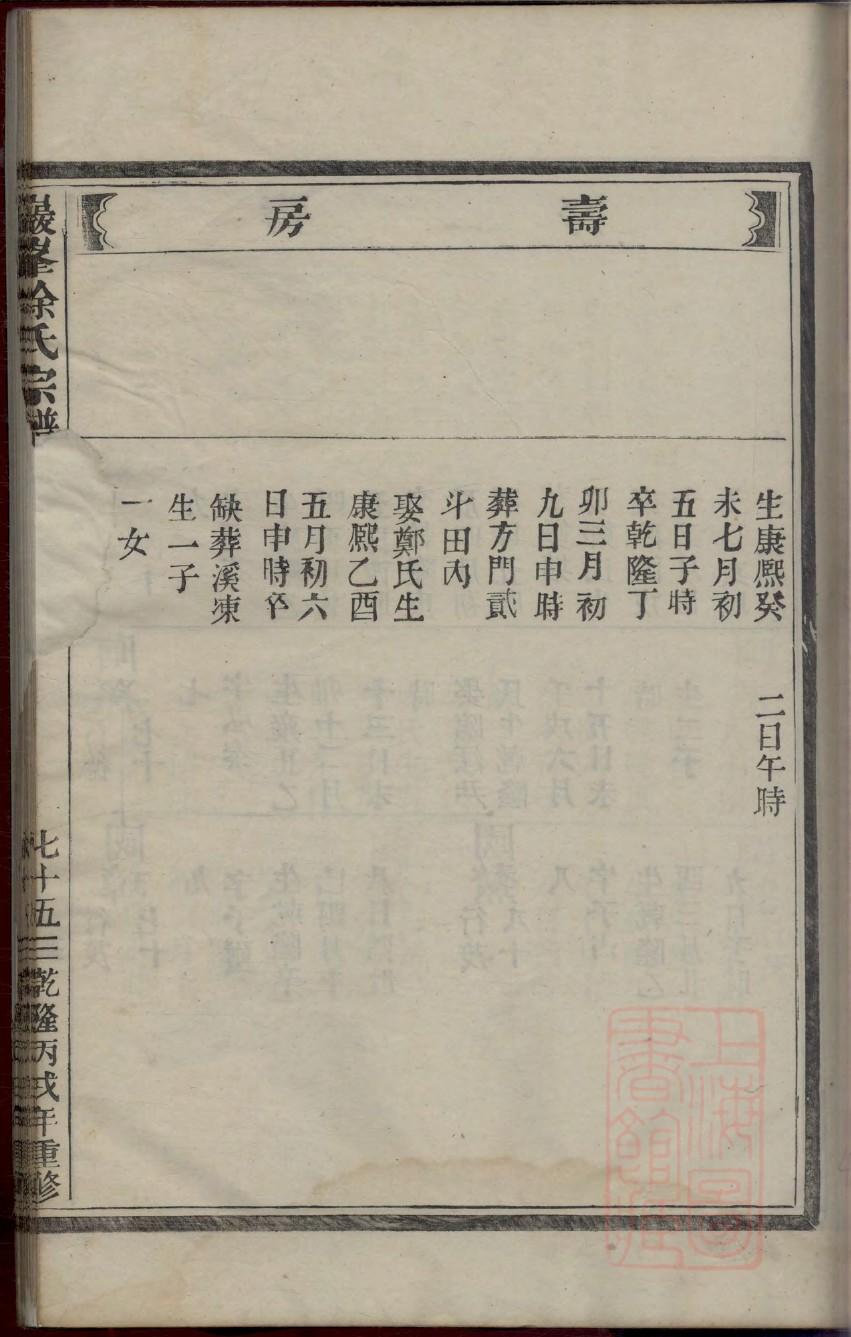 壽房
生康熙癸
未七月初
五日子時
卒乾隆丁
卯三月初
九日申時
葬方門貳
斗田內
娶鄭氏生
康熙乙酉
五月初六
日申時卒
缺葬溪凍
生一子
一女
二日午時
巖峯徐氏宗譜
七十五
乾隆丙戌年重修
上海圖書館藏